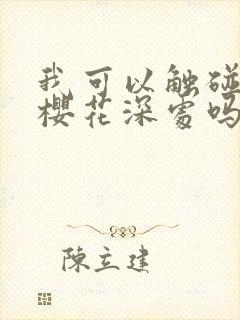 我可以触碰
櫻花深处吗
陳立建